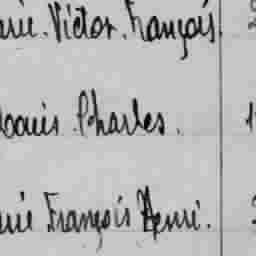 Victor. François.
Louis Charles.
François Henri.